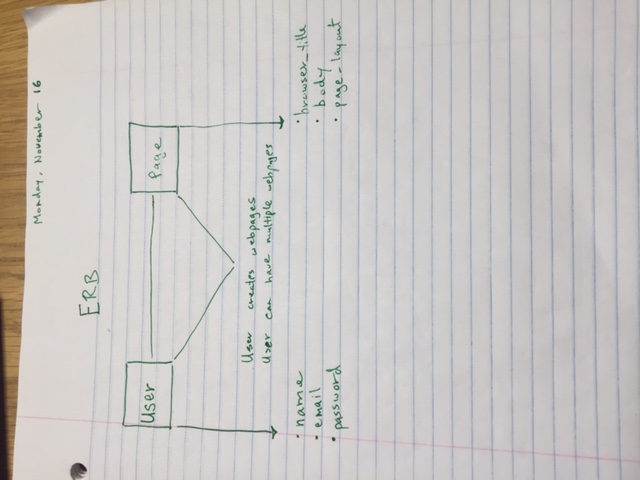 Monday, November 16
ERB
User
Page
User creates webpages
User can have multiple webpages
· name
· email
· password
· browser_title
· body
· page_layout